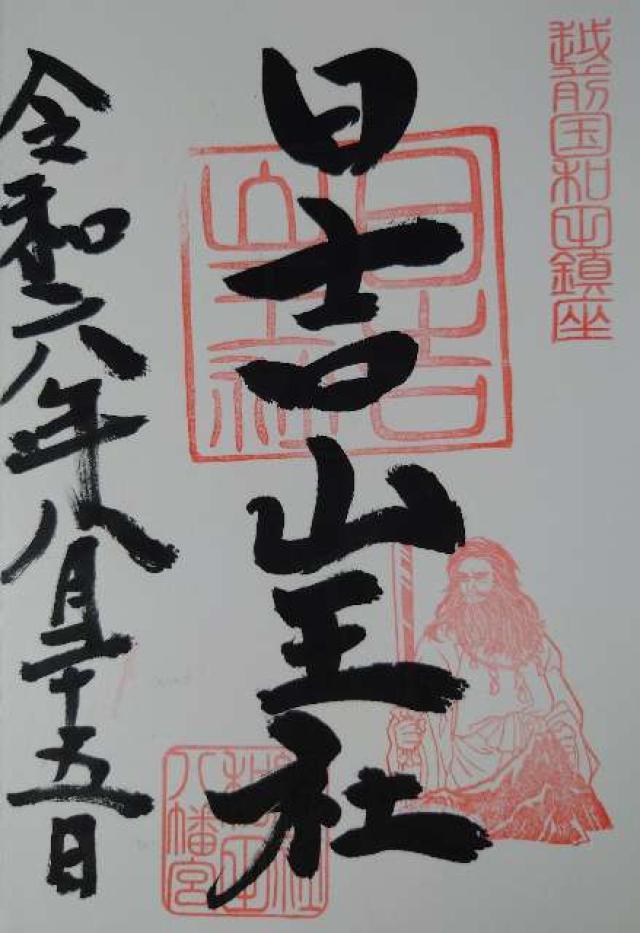 越前国和田鎮座
日吉山王社
日吉
山王社
八幡宮
令和六年八月二十五日